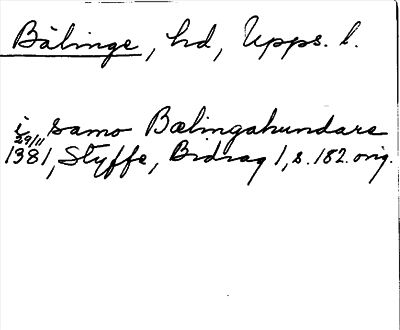 Bälinge, hd, Upps. l.
i samo Bælingahundare
29/11
1381, Styffe, Bidrag 1, s. 182. orig.